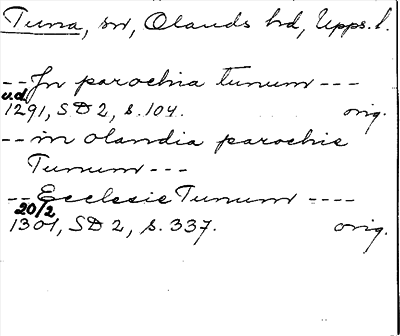 Tuna, sn, Olands hd, Upps. l.
-- In parochia tunum ---
u.d.
1291, SD 2, s. 104. orig.
-- in olandia parochie
Tunum ---
-- Ecclesie Tunum ----
20/2
1301, SD 2, s. 337. orig.